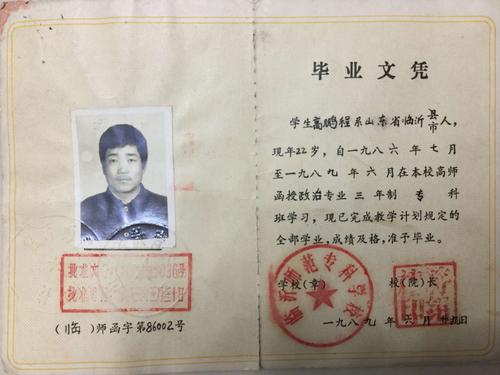 毕业文凭
学生高鹏程系山东省临沂县市人，
现年22岁，自一九八六年七月
至一九八九年六月在本校高师
函授政治专业三年制专科
班学习，现已完成教学计划规定的
全部学业，成绩及格，准予毕业。
学校(章) 校(院)长
临沂师范专科学校
一九八九年六月廿九日
批准文
批准
(临)师函字第86002号